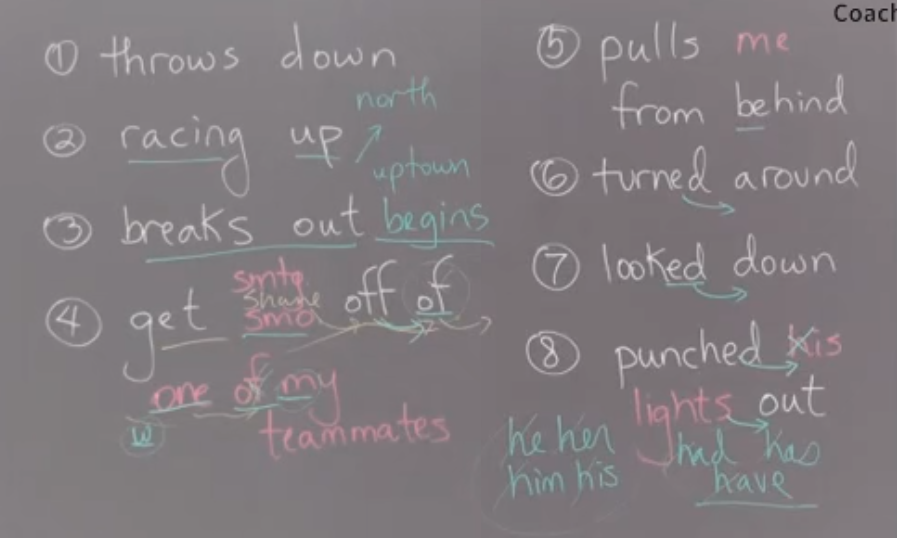 Coach
① throws down
north
② racing up
uptown
③ breaks out begins
④ get smtg off of
shane
smo
one of my
w
teammates
⑤ pulls me
from behind
⑥ turned around
⑦ looked down
⑧ punched his
lights out
he her had has
him his have